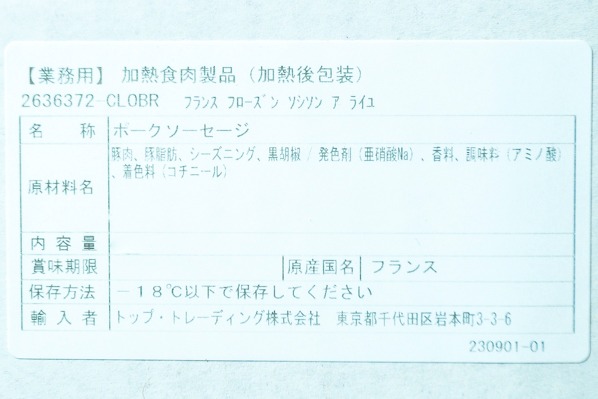 【業務用】 加熱食肉製品（加熱後包装）
2636372-CLOBR ﾌﾗﾝｽ ﾌﾛｰｽﾞﾝ ｿｼｿﾝ ｱ ﾗｲﾕ
名 称 ポークソーセージ
豚肉、豚脂肪、シーズニング、黒胡椒 / 発色剤（亜硝酸Na）、香料、調味料（アミノ酸）
原材料名 、着色料（コチニール）
内 容 量
賞味期限 原産国名 フランス
保存方法 －18℃以下で保存してください
輸 入 者 トップ・トレーディング株式会社 東京都千代田区岩本町3-3-6
230901-01